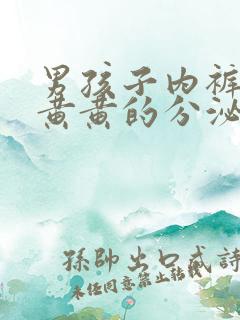 男孩子内裤
黄黄的分泌
孫帥出口成詩
未经同意禁止转载